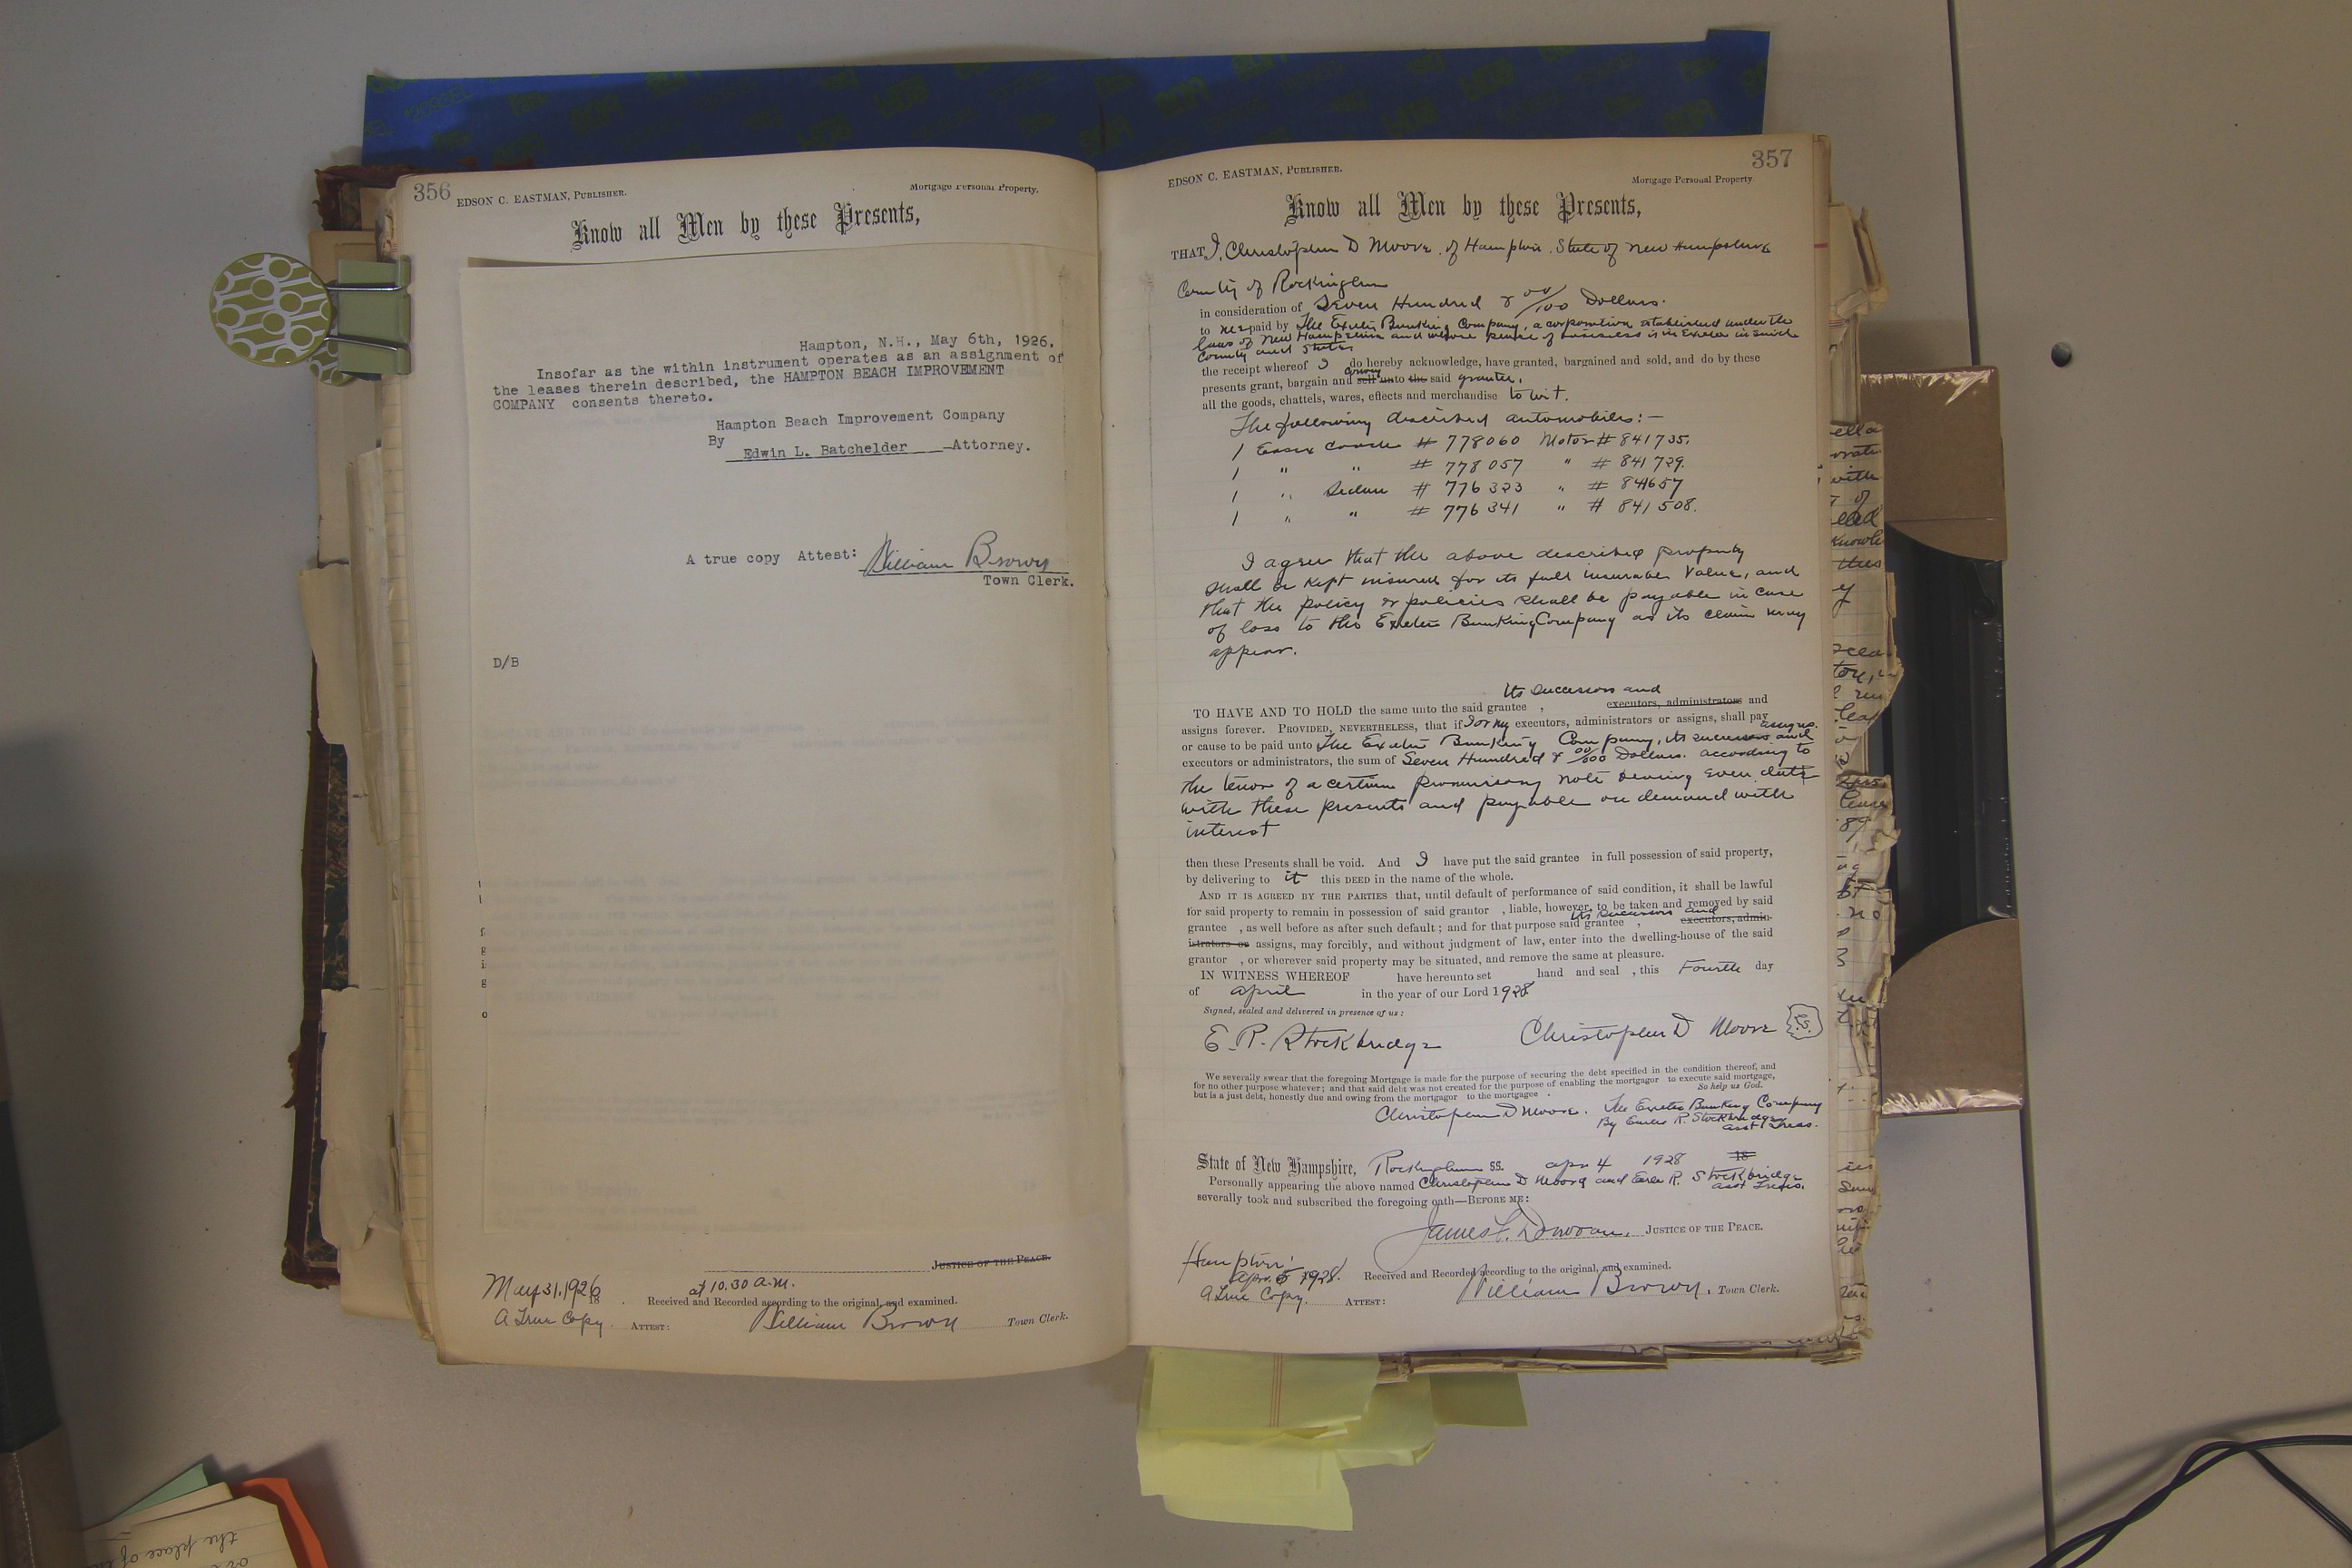 356
EDSON C. EASTMAN, PUBLISHER.
Mortgage Personal Property.
Know all Men by these Presents,
Hampton, N.H., May 6th, 1926.
Insofar as the within instrument operates as an assignment of
the leases therein described, the HAMPTON BEACH IMPROVEMENT
COMPANY consents thereto.
Hampton Beach Improvement Company
By
Edwin L. Batchelder Attorney.
A true copy Attest: William Brown
Town Clerk.
D/B
JUSTICE OF THE PEACE.
May 31, 1926 at 10.30 a.m.
18
Received and Recorded according to the original, and examined.
A True Copy. ATTEST: William Brown Town Clerk.
357
EDSON C. EASTMAN, PUBLISHER.
Mortgage Personal Property
Know all Men by these Presents,
THAT I, Christopher D Moore, of Hampton State of New Hampshire
County of Rockingham
in consideration of Seven Hundred & 00/100 Dollars.
to me paid by The Exeter Banking Company, a corporation established under the
laws of New Hampshire and whose place of business is in Exeter in said
County and State
the receipt whereof I do hereby acknowledge, have granted, bargained and sold, and do by these
convey
presents grant, bargain and sell unto the said grantee,
all the goods, chattels, wares, effects and merchandise to wit.
The following described automobiles:—
1 Essex Coach # 778060 Motor # 841735.
1 " " # 778057 " # 841729.
1 " Sedan # 776323 " # 841657
1 " " # 776341 " # 841508.
I agree that the above described property
shall be kept insured for its full insurable value, and
that the policy or policies shall be payable in case
of loss to the Exeter Banking Company as its claim may
appear.
its successors and
TO HAVE AND TO HOLD the same unto the said grantee , executors, administrators and
assigns forever. PROVIDED, NEVERTHELESS, that if I or my executors, administrators or assigns, shall pay
assigns.
or cause to be paid unto The Exeter Banking Company, its successors and
executors or administrators, the sum of Seven Hundred & 00/100 Dollars. according to
the tenor of a certain promissory note bearing even date
with these presents and payable on demand with
interest
then these Presents shall be void. And I have put the said grantee in full possession of said property,
by delivering to it this DEED in the name of the whole.
AND IT IS AGREED BY THE PARTIES that, until default of performance of said condition, it shall be lawful
for said property to remain in possession of said grantor , liable, however, to be taken and removed by said
its successors and
grantee , as well before as after such default; and for that purpose said grantee , executors, admin-
istrators or assigns, may forcibly, and without judgment of law, enter into the dwelling-house of the said
grantor , or wherever said property may be situated, and remove the same at pleasure.
IN WITNESS WHEREOF have hereunto set hand and seal , this Fourth day
of April in the year of our Lord 1928
Signed, sealed and delivered in presence of us:
E. R. Stockbridge Christopher D Moore L.S.
We severally swear that the foregoing Mortgage is made for the purpose of securing the debt specified in the condition thereof, and
for no other purpose whatever; and that said debt was not created for the purpose of enabling the mortgagor to execute said mortgage,
but is a just debt, honestly due and owing from the mortgagor to the mortgagee . So help us God.
Christopher D Moore. The Exeter Banking Company
By Earle R. Stockbridge
asst Treas.
State of New Hampshire, Rockingham SS. Apr 4 1928 18
Personally appearing the above named Christopher D Moore and Earle R. Stockbridge
asst Treas.
severally took and subscribed the foregoing oath—BEFORE ME:
James F. Donovan, JUSTICE OF THE PEACE.
Hampton
Apr. 5 1928. Received and Recorded according to the original, and examined.
A True Copy. ATTEST: William Brown, Town Clerk.